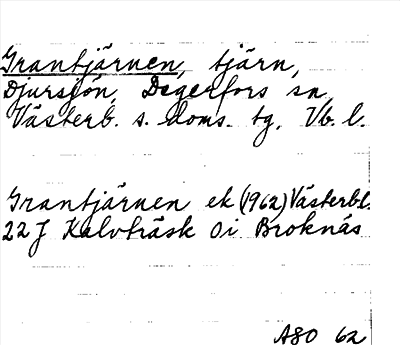 Grantjärnen, tjärn,
Djursjön, Degerfors sn,
Västerb. s. doms. tg, Vb. l.
Grantjärnen ek (1962) Västerbl.
22 J Kalvträsk Oi Broknäs
ASO 62